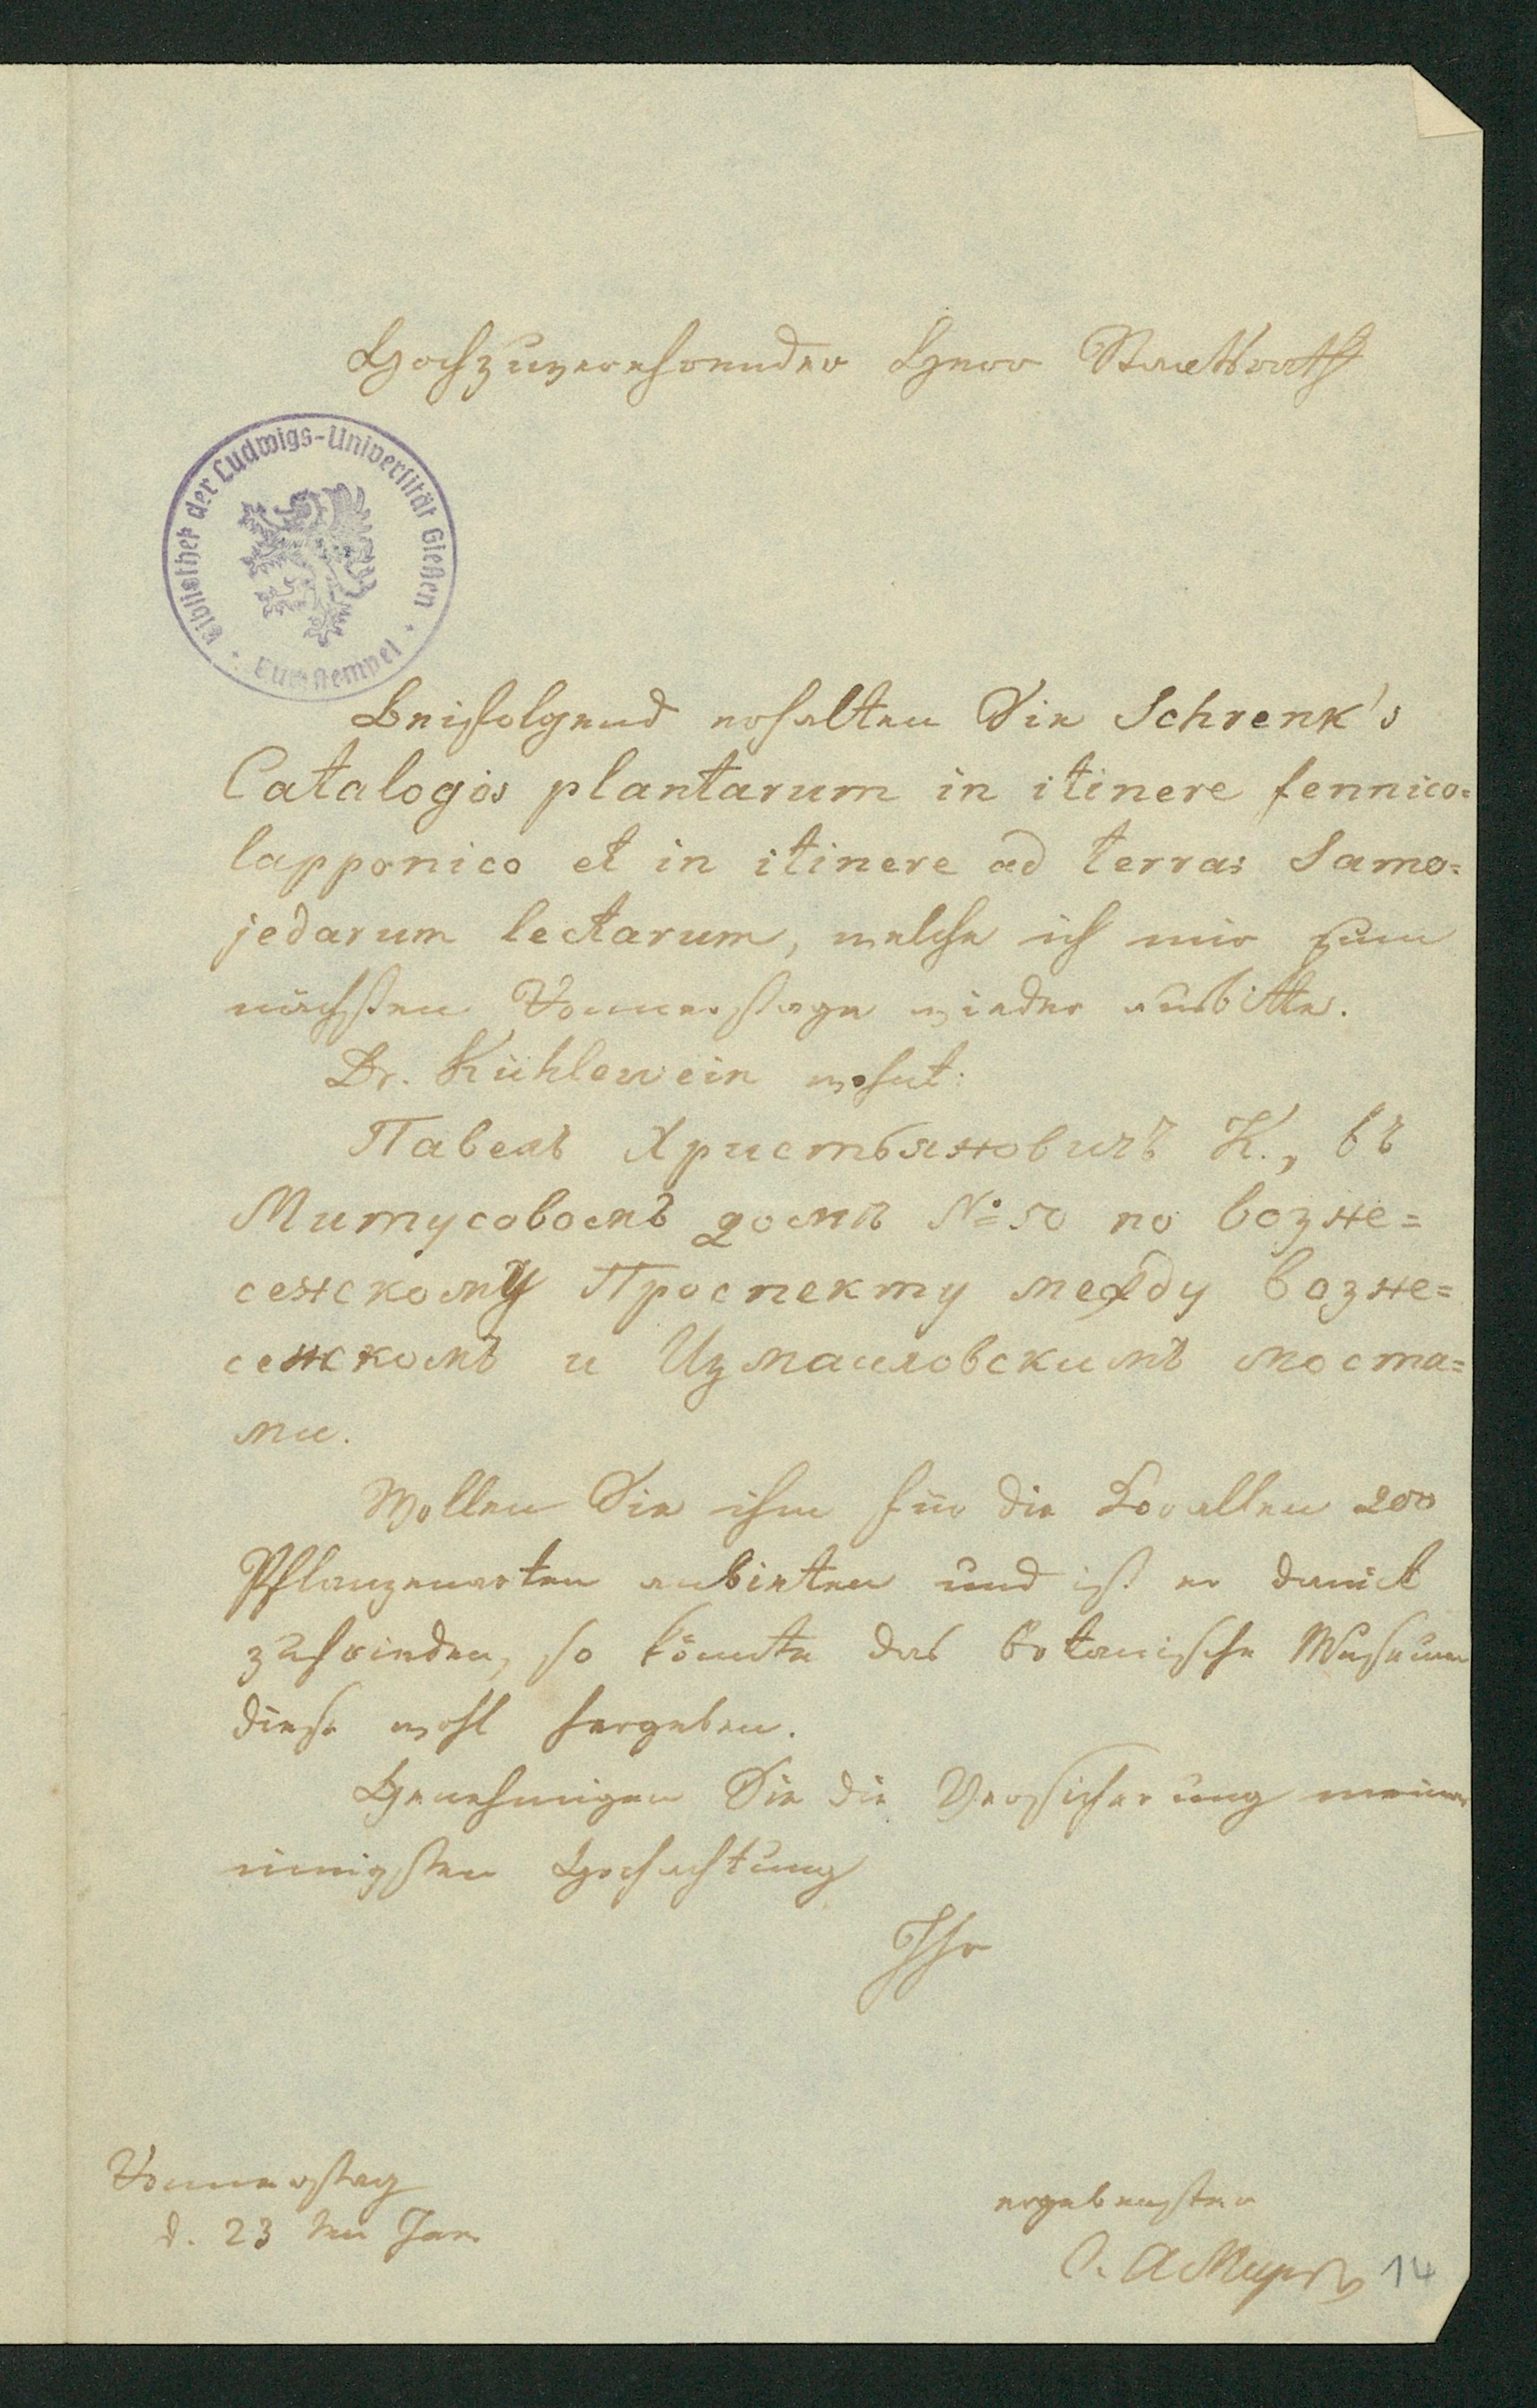 Hochzuverehrender Herr Staatsrath
Bibliothek der Ludwigs-Universität Gießen
Beifolgend erhalten Sie Schrenk's
Catalogis plantarum in itinere fennico=
lapponico et in itinere ad terras Samo=
jedarum lectarum, welche ich mir zum
nächsten Donnerstage wieder ausbitte.
Dr. Kühlewein wohnt:
Павелъ Христьяновичъ К., въ
Митусовомъ домѣ № 50 по возне=
сенскому Проспекту между возне=
сенскомъ и Измаиловскимъ моста=
ми.
Wollen Sie ihm für die Corallen 200
Pflanzenarten anbieten und ist er damit
zufrieden, so könnte das botanische Museum
diese wohl hergeben.
Genehmigen Sie die Versicherung meiner
innigsten Hochachtung
Ihr
Donnerstag
d. 23 ten Jan
ergebenster
C. A Meyer
14